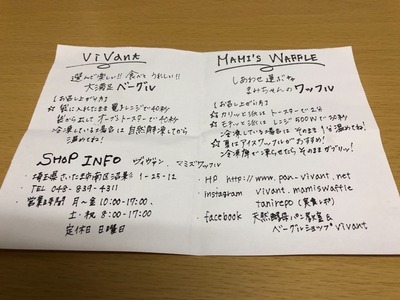 ViVant
選んで楽しい!! 食べてうれしい!!
大満足 ベーグル
《お召し上がり方》
☆ 袋に入れたまま電子レンジで40秒
袋から出してオーブントースターで40秒
冷凍している場合は自然解凍してから
温めてね!
MAMI'S WAFFLE
しあわせ運ぶ
まみちゃんのワッフル
《お召し上がり方》
☆ カリッと シ トースターで2分
☆ モチッと シ レンジ500Wで30秒
冷凍している場合はそのまま 温めてね!
☆ 夏はアイスワッフルがおすすめ!
冷凍庫で凍らせたらそのままガブリッ!
SHOP INFO ヴィヴァン マミズワッフル
・埼玉県さいたま市南区沼影1-25-12
・TEL 048-839-4311
・営業時間 月〜金 10:00-17:00、
土・祝 8:00-17:00
定休日 日曜日
・HP http://www.pan-vivant.net
・instagram vivant.mamiswaffle
tanirepo (実食レポ)
・facebook 天然酵母パン教室&
ベーグルショップ vivant